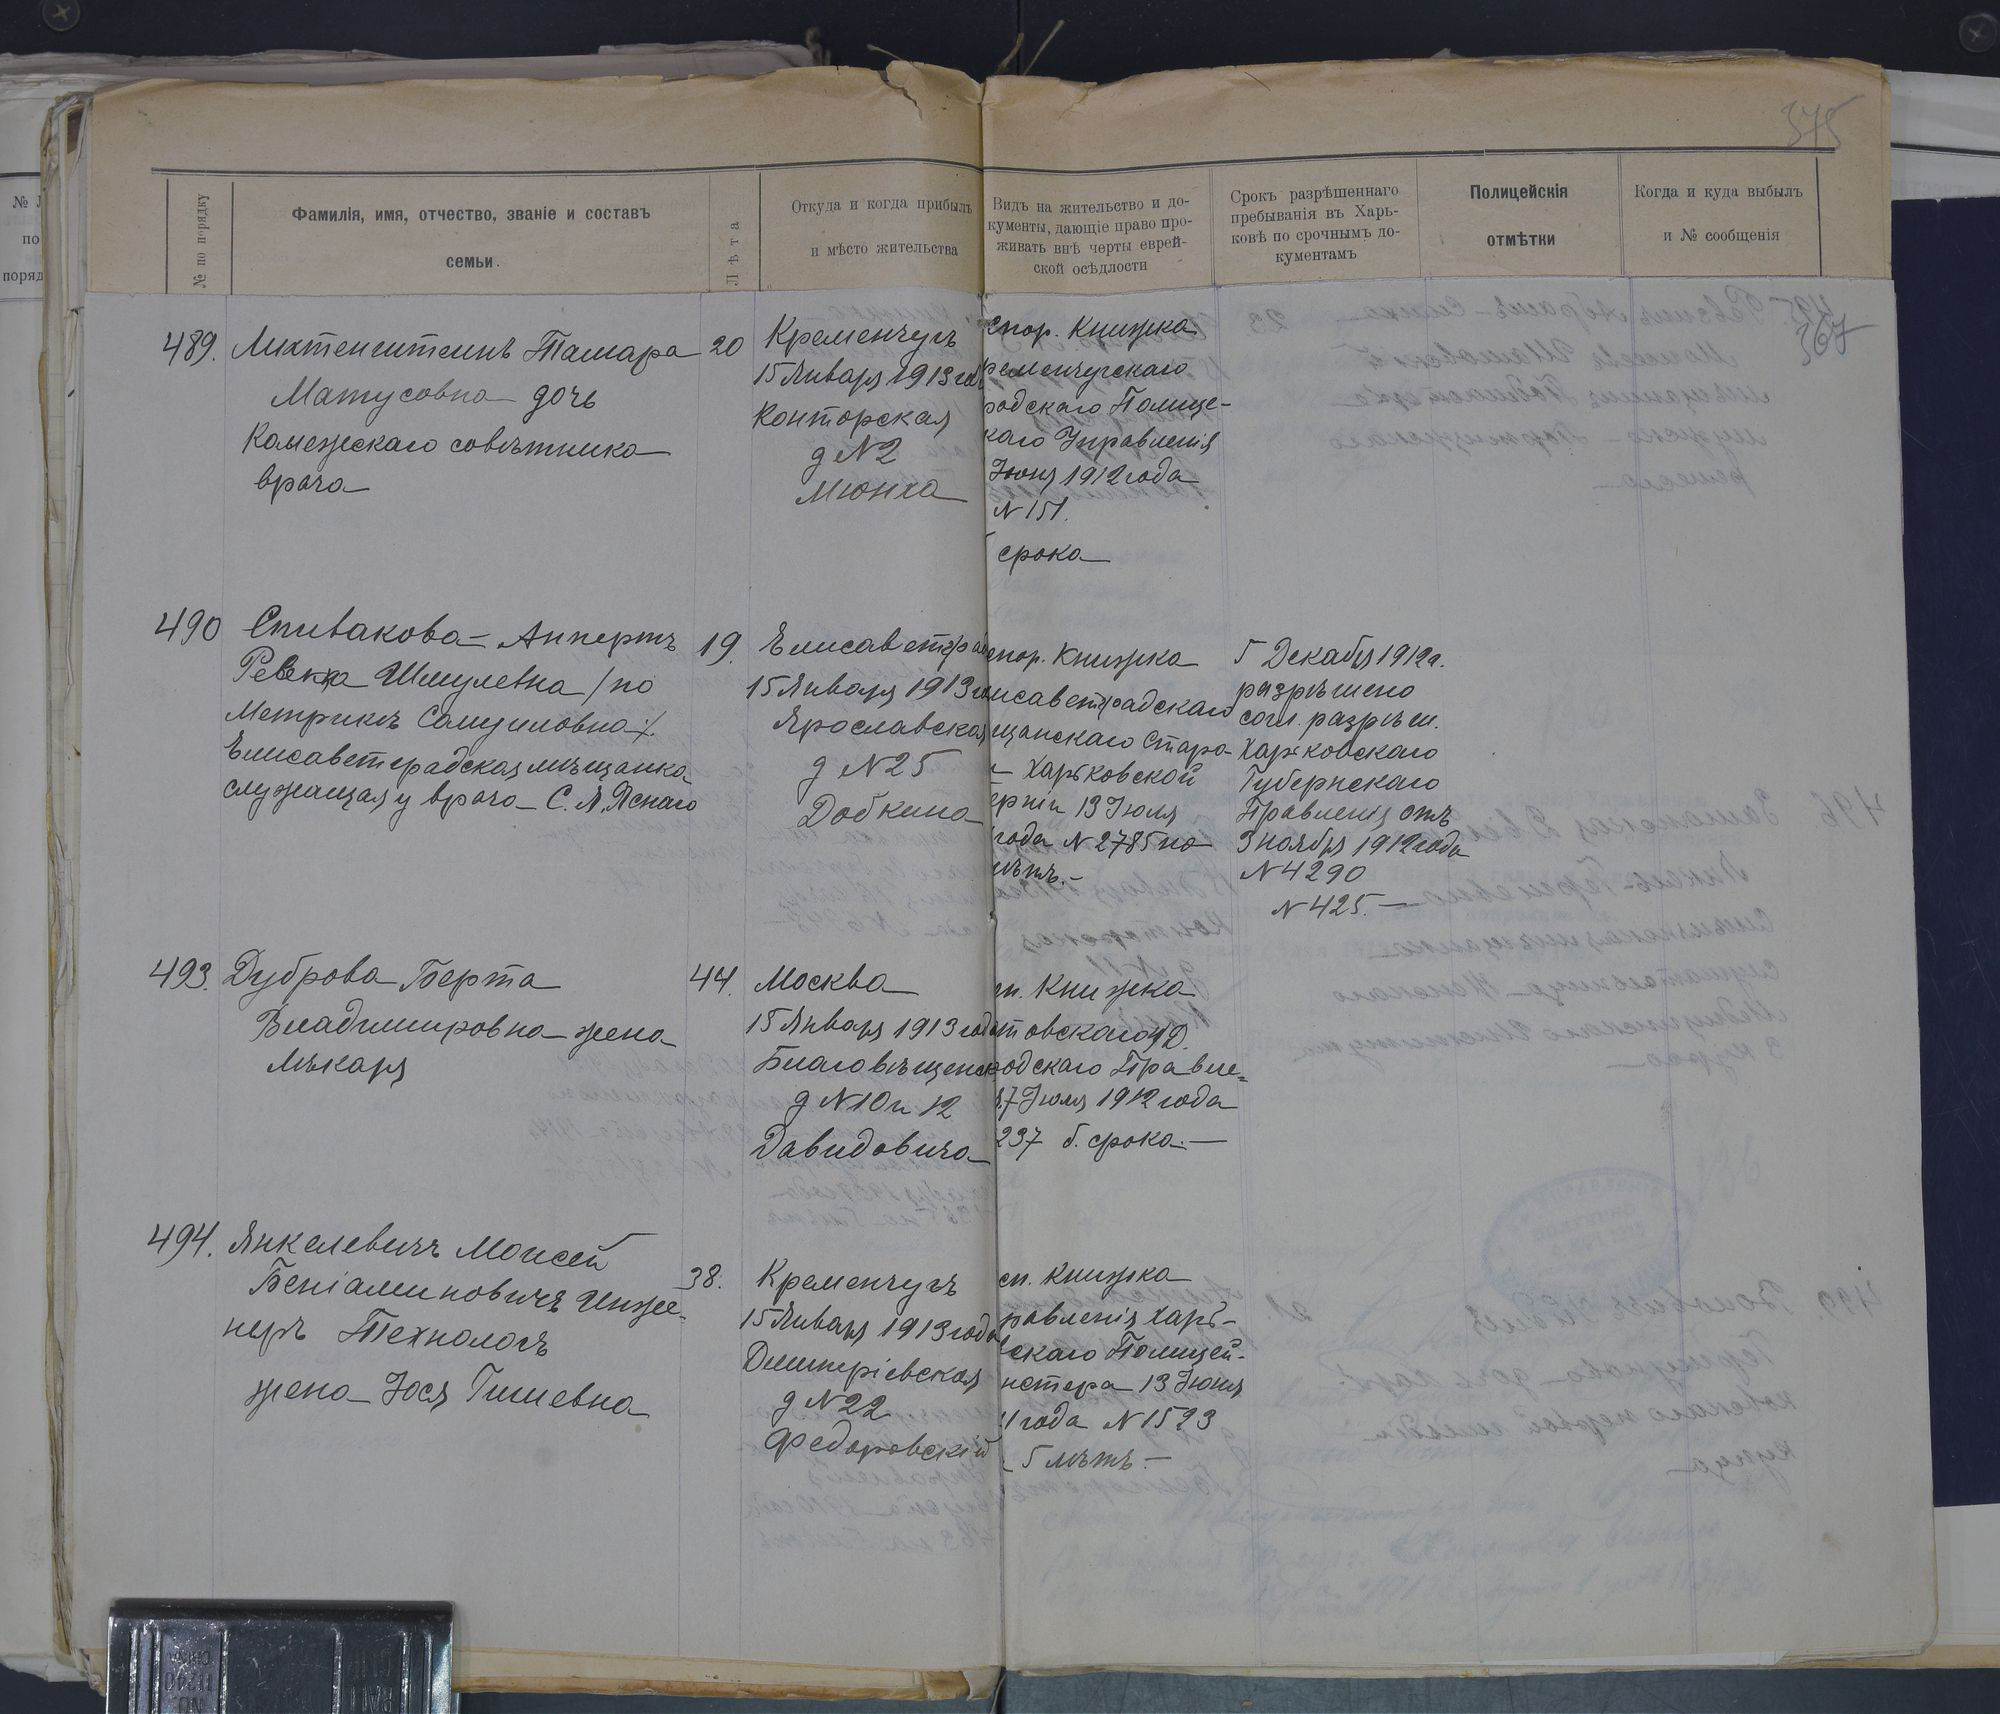 375
№ по порядку
Фамилія, имя, отчество, званіе и составъ
семьи.
Лѣта
Откуда и когда прибылъ
и мѣсто жительства
Видъ на жительство и до-
кументы, дающіе право про-
живать внѣ черты еврей-
ской осѣдлости
Срокъ разрѣшеннаго
пребыванія въ Харь-
ковѣ по срочнымъ до-
кументамъ
Полицейскія
отмѣтки
Когда и куда выбылъ
и № сообщенія
367
489. Лихтенштейнъ Тамара
Матусовна дочь
Колежскаго совѣтника
врача
20
Кременчугъ
15 Января 1913 год
Конторская
д N2
Мюнха
спор. Книжка
ременчугскаго
родскаго Полице-
каго Управленія
Июня 1912 года
N 151.
срока
490 Спивакова - Аппертъ
Ревека Шмулевна /по
Метрикѣ Самуиловна/.
Елисаветградская мѣщанка
служащая у врача С. Я. Яснаго
19.
Елисаветград
15 Января 1913 го
Ярославская
д N25
Добкина
спор. Книжка
лисаветградскаго
щанскаго Старо-
Харьковской
ерніи 13 Іюля
года N 2785 на
лѣтъ.-
5 Декабря 1912г.
разрѣшено
согл. разрѣш.
Харьковскаго
Губернскаго
Правленія отъ
3 ноября 1912 года
N 4290
N 425.-
493. Дуброва Берта
Владимировна жена
лѣкаря
44.
Москва
15 Января 1913 года
Благовѣщенск
д N10 и 12
Давидовича
п. Книжка
товскаго н/Д.
родскаго Правле-
7 Іюля 1912 года
237 б. срока.-
494. Янкелевичъ Моисей
Беніаминовичъ Инже-
неръ Технологъ
жена Зося Гилиевна
38.
Кременчугъ
15 Января 1913 года
Дмитріевская
д N22
Федоровскій
сп. книжка
равленія Харь-
вскаго Полицей-
истера 13 Іюня
1 года N 1523
5 лѣтъ.-